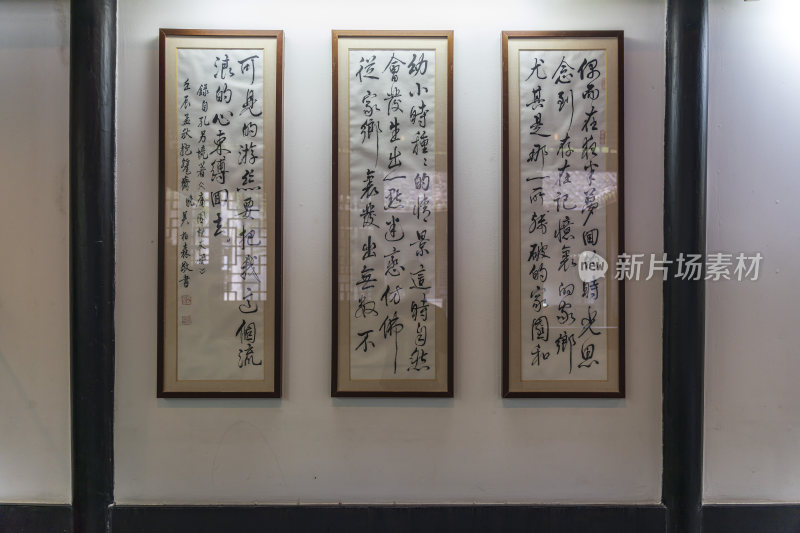 偶而在夜半夢回時光思
念到存在記憶裏的家鄉
尤其是那一所殘破的家園和
幼小時種々的情景這時自然
會發生出一點迷戀仿佛
從家鄉裏發出無數不
可見的游絲要把我這個流
浪的心束縛回去。
錄自孔另境著
壬辰孟秋 吴柏森敬書
new 新片场素材